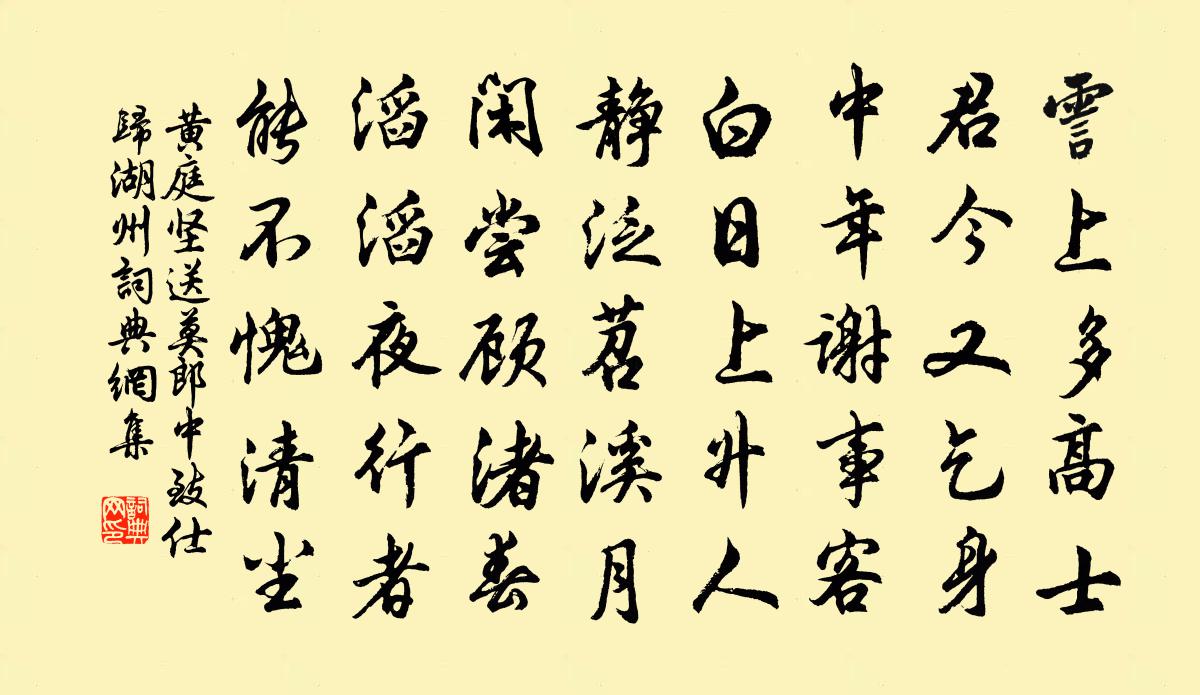 霅上多高士
君今又乞身
中年謝事客
白日上升人
静泛苕溪月
闲尝顾渚春
滔滔夜行者
能不愧清尘
黄庭坚送莫郎中致仕
歸湖州詞典網集
詞典
网印